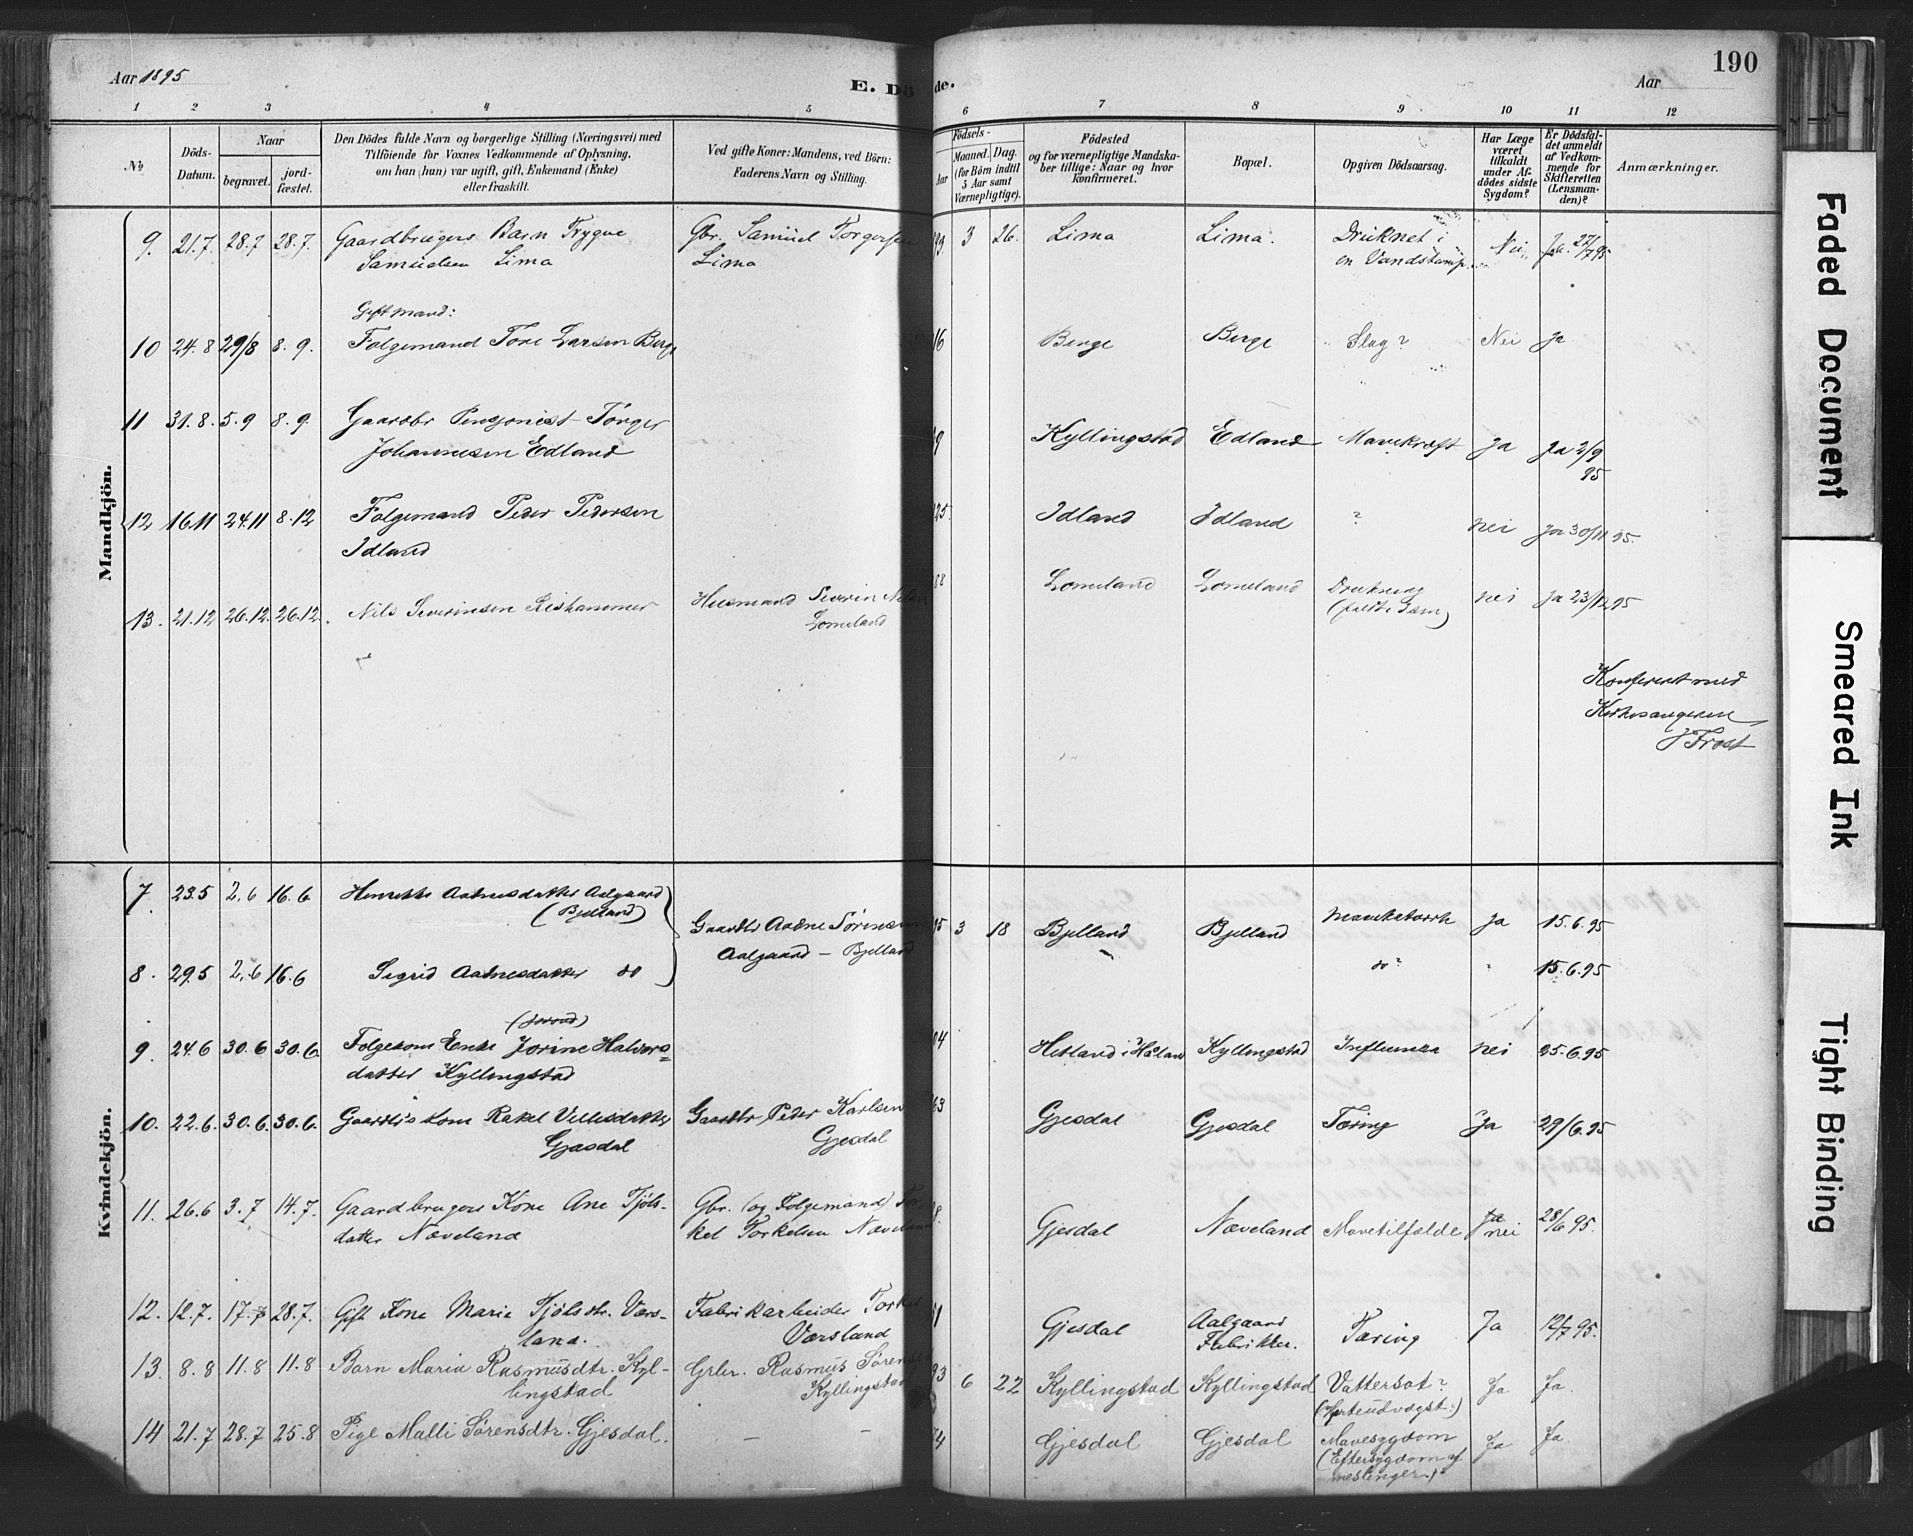 Aar 1895
E. Dö
de.
Aar
190
1 2 3 4 5 6 7 8 9 10 11 12
No
Döds-Datum.
Naar
begravet.
jord-fæstet.
Den Dödes fulde Navn og borgerlige Stilling (Næringsvei) med
Tilföiende for Voxnes Vedkommende af Oplysning,
om han (hun) var ugift, gift, Enkemand (Enke)
eller fraskilt.
Ved gifte Koner: Mandens, ved Börn:
Faderens Navn og Stilling.
Födsels-
Aar
Maaned. Dag.
(for Börn indtil
5 Aar samt
Værnepligtige).
Födested
og for værnepligtige Mandska-
ber tillige: Naar og hvor
konfirmeret.
Bopæl.
Opgiven Dödsaarsag.
Har Læge
været
tilkaldt
under Af-
dödes sidste
Sygdom?
Er Dödsfal-
det anmeldt
af Vedkom-
mende for
Skifteretten
(Lensman-
den)?
Anmærkninger.
Mandkjön.
9. 21.7. 28.7 28.7. Gaardbrugers Barn Trygve Gbr. Samuel Torgersen 93 3 26. Lima Lima. Druknet i Nei Ja 27/7 95
Samuelsen Lima Lima en Vandstamp.
Gift mand:
10 24.8 29/8 8.9. Folgemand Tore Larsen Berge 16 Berge Berge Slag? Nei Ja
11 31.8. 5.9 8.9. Gaardbr Pensjonist Törger 9 Kyllingstad Edland Mavekræft Ja Ja 2/9
Johannesen Edland 95
12 16.11 24.11 8.12 Folgemand Peder Pedersen 25 Idland Idland ? nei Ja 30/11 95.
Idland
13. 21.12 26.12. 26.12. Nils Severinsen Rishammer Husmand Severin Nilsen 88 Lomeland Lomeland Drukning nei Ja 23/12 95
Lomeland
Konfereret med
Kirkesangeren
J Frost
Kvindekjön.
7. 23.5 2.6 16.6 Henrikke Aadnesdatter Aalgaard
(Bjelland)
Gaardbr Aadne Sörensen 95 3 18 Bjelland Bjelland Mavekatarrh Ja 15.6.95
Aalgaard – Bjelland
8. 29.5 2.6 16.6 Sigrid Aadnesdatter do do? " 15.6.95
9. 24.6 30.6 30.6. Folgekone Enke Jorine Halvors= 04 Hetland i Höland Kyllingstad Influenza nei 25.6.95
datter Kyllingstad
10. 22.6. 30.6. 30.6. Gaardbr's kone Rakel Villesdatter Gaardbr Peder Karlsen 63 Gjesdal Gjesdal Tæring Ja 29/6.95
Gjesdal Gjesdal
11. 26.6 3.7 14.7. Gaardbrugers Kone Ane Tjöls- Gbr. (og Folgemand) Tor- 8. Gjesdal Næveland Mavetilfælde Ja 28/6 95.
datter Næveland kel Torkelsen Næveland nei
12. 12.7. 17.7 28.7. Gift Kone Marie Tjölsdtr. Værs- Fabrikarbeider Torkel 61 Gjesdal Aalgaard Tæring Ja 12/7 95.
land. Værsland Fabrikker.
13. 8.8 11.8 11.8 Barn Maria Rasmusdtr. Kyl- Grbr. Rasmus Sörensen 93 6 22 Kyllingstad Kyllingstad Vattersot? Ja Ja.
lingstad Kyllingstad (Hjerteudvægst.)
14 21.7 28.7 25.8 Pige Malli Sörensdtr. Gjesdal. – – 74 Gjesdal Gjesdal Mavesygdom Ja Ja.
(Eftersygdom af
meslinger.)?
Faded Document
Smeared Ink
Tight Binding